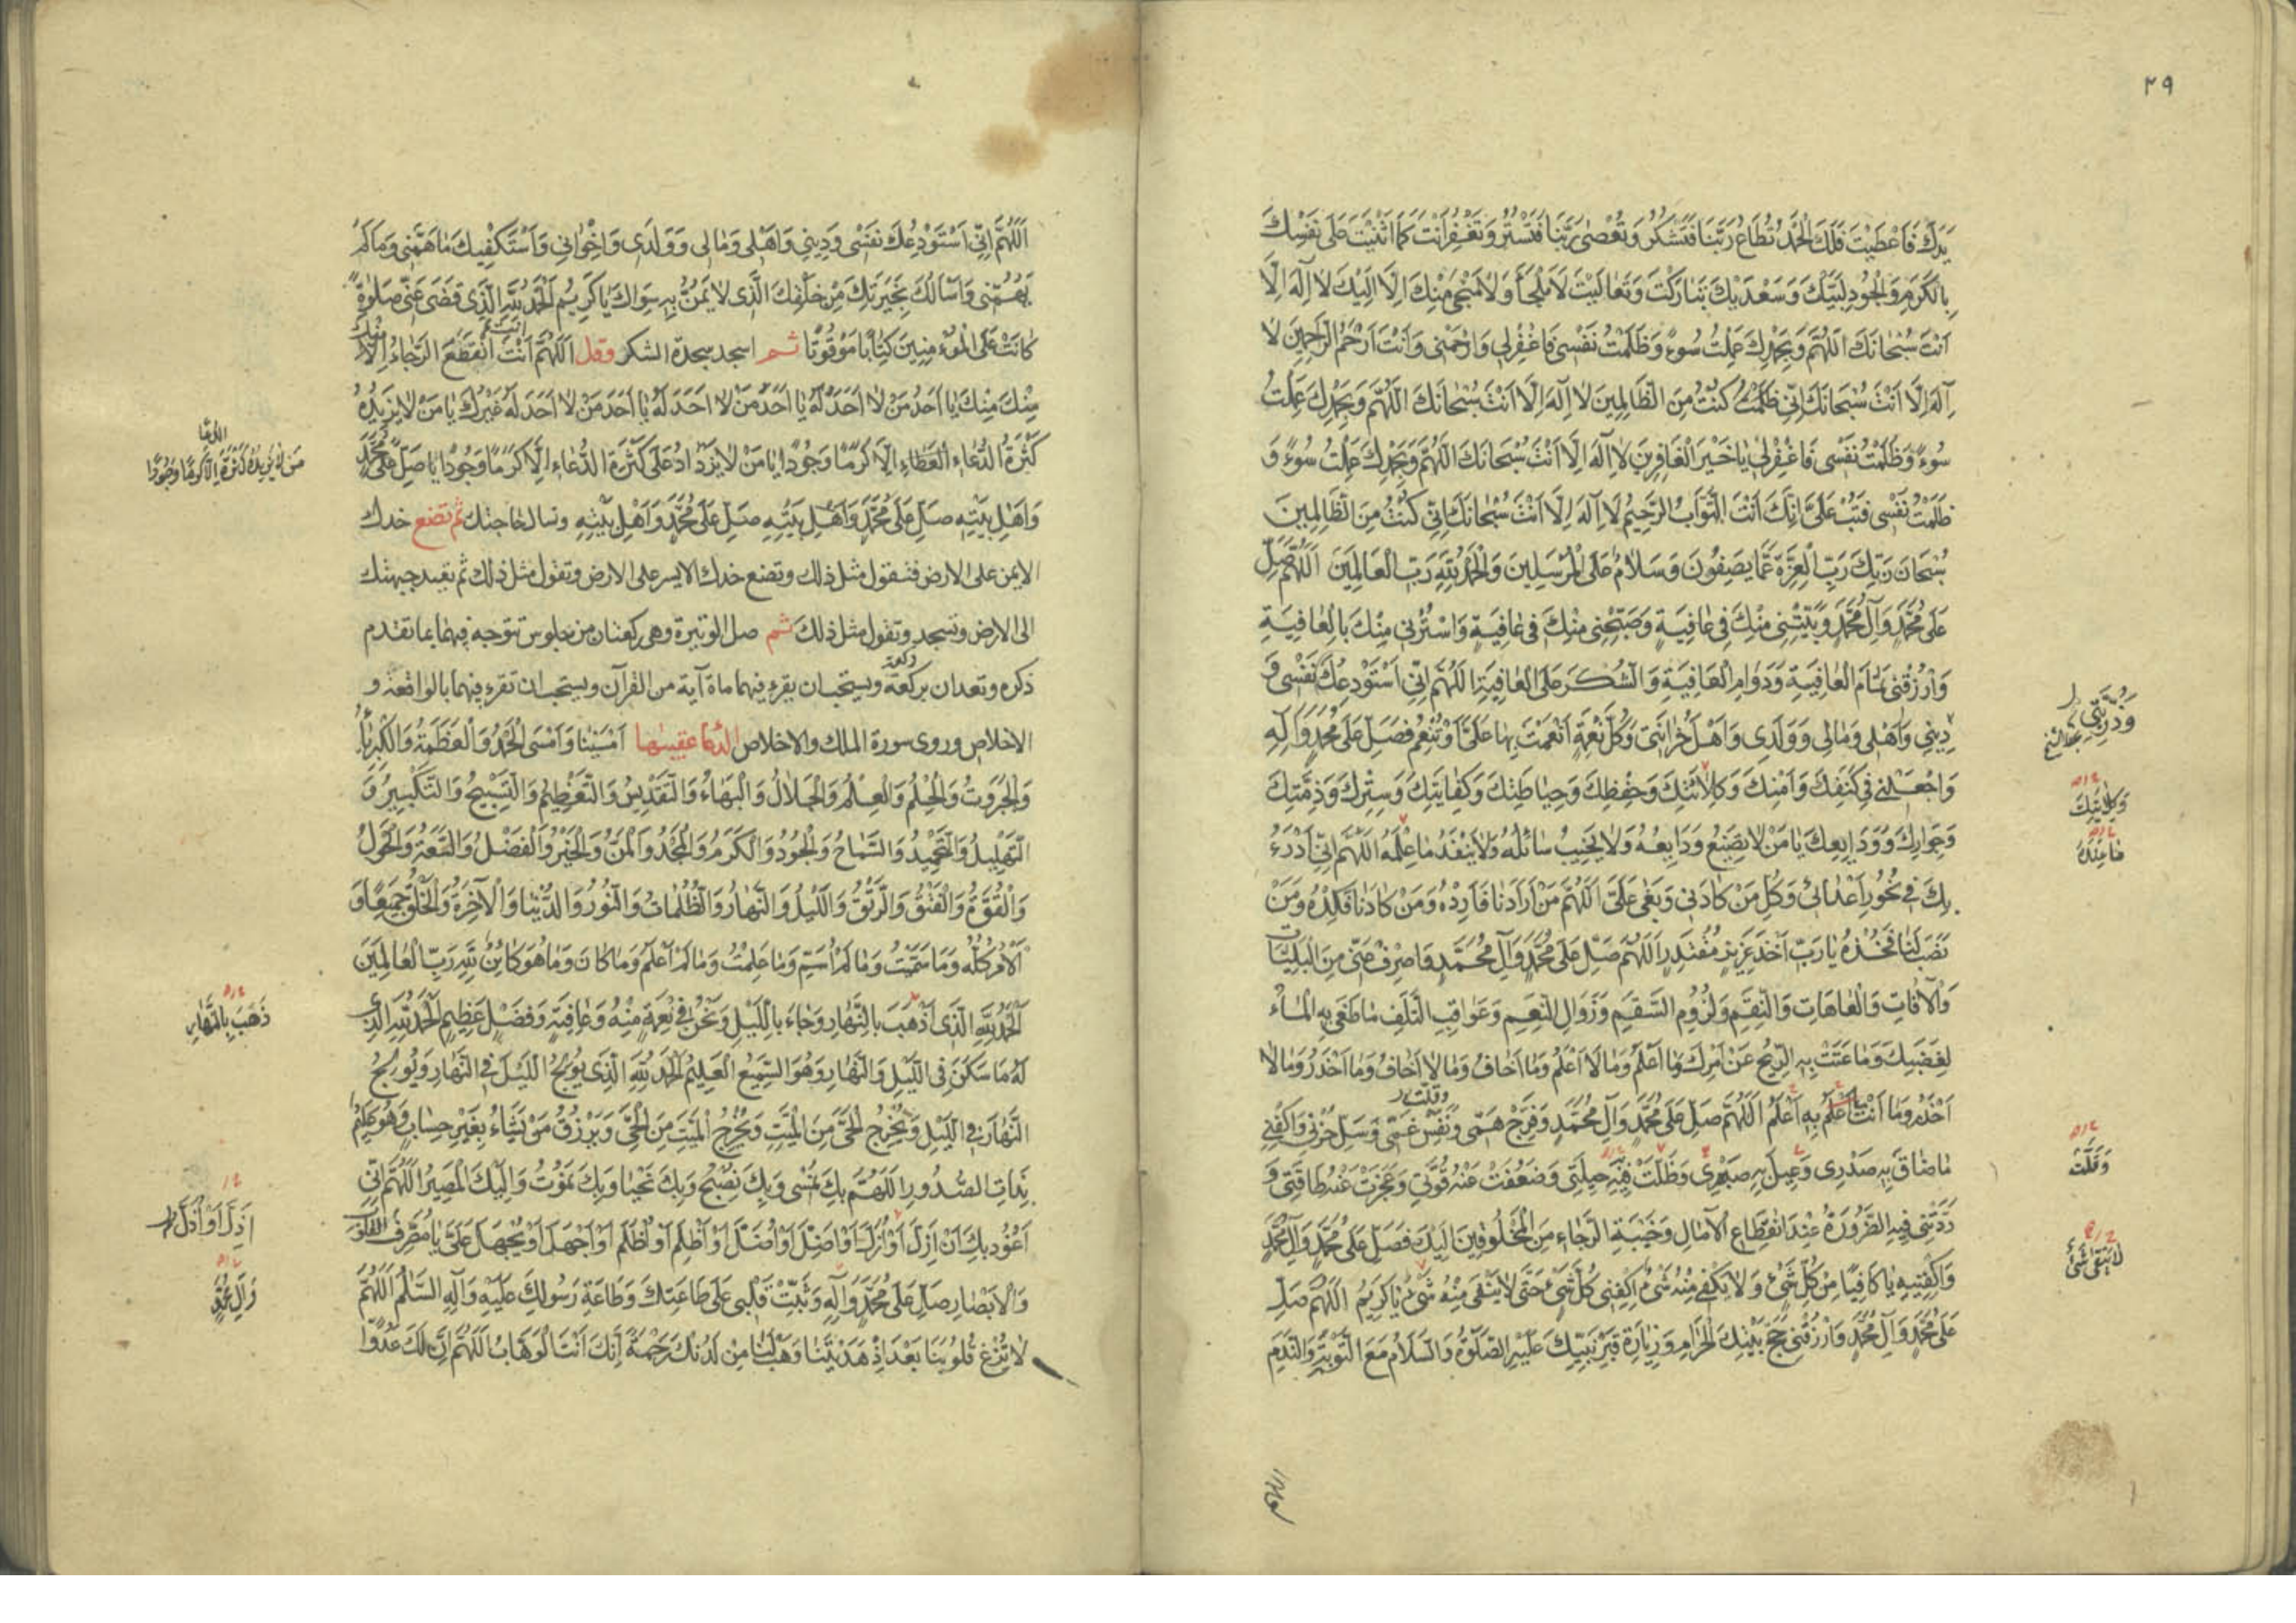 ٢٩
يَدَكَ فَاَعْطَيْتَ فَلَكَ الْحَمْدُ تُطَاعُ رَبَّنَا فَتَشْكُرُ وَتُعْصٰى رَبَّنَا فَتَسْتُرُ وَتَغْفِرُ اَنْتَ كَمَا اَثْنَيْتَ عَلٰى نَفْسِكَ
بِالْكَرَمِ وَالْجُودِ لَبَّيْكَ وَسَعْدَيْكَ تَبَارَكْتَ وَتَعَالَيْتَ لَا مَلْجَأَ وَلَا مَنْجٰى مِنْكَ اِلَّا اِلَيْكَ لَا اِلٰهَ اِلَّا
اَنْتَ سُبْحَانَكَ اللّٰهُمَّ وَبِحَمْدِكَ عَمِلْتُ سُوءً وَظَلَمْتُ نَفْسِى فَاغْفِرْلِى وَارْحَمْنِى وَاَنْتَ اَرْحَمُ الرَّاحِمِينَ لَا
اِلٰهَ اِلَّا اَنْتَ سُبْحَانَكَ اِنِّى ظَلَمْتُ كُنْتُ مِنَ الظَّالِمِينَ لَا اِلٰهَ اِلَّا اَنْتَ سُبْحَانَكَ اللّٰهُمَّ وَبِحَمْدِكَ عَمِلْتُ
سُوءً وَظَلَمْتُ نَفْسِى فَاغْفِرْلِى يَا خَيْرَ الْغَافِرِينَ لَا اِلٰهَ اِلَّا اَنْتَ سُبْحَانَكَ اللّٰهُمَّ وَبِحَمْدِكَ عَمِلْتُ سُوءً وَ
ظَلَمْتُ نَفْسِى فَتُبْ عَلَىَّ اِنَّكَ اَنْتَ التَّوَّابُ الرَّحِيمُ لَا اِلٰهَ اِلَّا اَنْتَ سُبْحَانَكَ اِنِّى كُنْتُ مِنَ الظَّالِمِينَ
سُبْحَانَ رَبِّكَ رَبِّ الْعِزَّةِ عَمَّا يَصِفُونَ وَسَلَامٌ عَلَى الْمُرْسَلِينَ وَالْحَمْدُ لِلّٰهِ رَبِّ الْعَالَمِينَ اَللّٰهُمَّ صَلِّ
عَلٰى مُحَمَّدٍ وَآلِ مُحَمَّدٍ وَبَيِّتْنِى مِنْكَ فِى عَافِيَةٍ وَصَبِّحْنِى مِنْكَ فِى عَافِيَةٍ وَاسْتُرْنِى مِنْكَ بِالْعَافِيَةِ
وَارْزُقْنِى تَمَامَ الْعَافِيَةِ وَدَوَامَ الْعَافِيَةِ وَالشُّكْرَ عَلَى الْعَافِيَةِ اَللّٰهُمَّ اِنِّى اَسْتَوْدِعُكَ نَفْسِى وَ
دِينِى وَاَهْلِى وَمَالِى وَوَلَدِى وَاَهْلَ حُزَانَتِى وَكُلَّ نِعْمَةٍ اَنْعَمْتَ بِهَا عَلَىَّ اَوْ تُنْعِمُ فَصَلِّ عَلٰى مُحَمَّدٍ وَآلِهِ
وَاجْعَلْنِى فِى كَنَفِكَ وَاَمْنِكَ وَكِلَائَتِكَ وَحِفْظِكَ وَحِيَاطَتِكَ وَكِفَايَتِكَ وَسِتْرِكَ وَذِمَّتِكَ
وَجِوَارِكَ وَوَدَايِعِكَ يَا مَنْ لَا تَضِيعُ وَدَايِعُهُ وَلَا يَخِيبُ سَائِلُهُ وَلَا يَنْفَدُ مَا عِلْمُهُ اللّٰهُمَّ اِنِّى اَدْرَءُ
بِكَ فِى نُحُورِ اَعْدَائِى وَكُلِّ مَنْ كَادَنِى وَبَغٰى عَلَىَّ اَللّٰهُمَّ مَنْ اَرَادَنَا فَاَرِدْهُ وَمَنْ كَادَنَا فَكِدْهُ وَمَنْ
نَصَبَ لَنَا فَخُذْهُ يَا رَبِّ اَخْذَ عَزِيزٍ مُقْتَدِرٍ اَللّٰهُمَّ صَلِّ عَلٰى مُحَمَّدٍ وَآلِ مُحَمَّدٍ وَاصْرِفْ عَنِّى مِنَ الْبَلِيَّاتِ
وَالْآفَاتِ وَالْعَاهَاتِ وَالنِّقَمِ وَلُزُومِ السَّقَمِ وَزَوَالِ النِّعَمِ وَعَوَاقِبِ التَّلَفِ مَا طَغٰى بِهِ الْمَاءُ
لِغَضَبِكَ وَمَا عَتَتْ بِهِ الرِّيحُ عَنْ اَمْرِكَ وَمَا اَعْلَمُ وَمَا لَا اَعْلَمُ وَمَا اَخَافُ وَمَا لَا اَخَافُ وَمَا اَحْذَرُ وَمَا لَا
اَحْذَرُ وَمَا اَنْتَ بِهِ اَعْلَمُ اَللّٰهُمَّ صَلِّ عَلٰى مُحَمَّدٍ وَآلِ مُحَمَّدٍ وَفَرِّجْ هَمِّى وَنَفِّسْ غَمِّى وَسَلِّ حُزْنِى وَاكْفِنِى
مَا ضَاقَ بِهِ صَدْرِى وَعِيلَ بِهِ صَبْرِى وَظَلَّتْ فِيهِ حِيلَتِى وَضَعُفَتْ عَنْهُ قُوَّتِى وَعَجَزَتْ عَنْهُ طَاقَتِى وَ
رَدَّتْنِى فِيهِ الضَّرُورَةُ عِنْدَ انْقِطَاعِ الْآمَالِ وَخَيْبَةِ الرَّجَاءِ مِنَ الْمَخْلُوقِينَ اِلَيْكَ فَصَلِّ عَلٰى مُحَمَّدٍ وَآلِ مُحَمَّدٍ
وَاكْفِنِيهِ يَا كَافِيًا مِنْ كُلِّ شَىْءٍ وَلَا يَكْفِى مِنْهُ شَىْءٌ اِكْفِنِى كُلَّ شَىْءٍ حَتّٰى لَا يَبْقٰى مِنْهُ شَىْءٌ يَا كَرِيمُ اَللّٰهُمَّ صَلِّ
عَلٰى مُحَمَّدٍ وَآلِ مُحَمَّدٍ وَارْزُقْنِى حَجَّ بَيْتِكَ الْحَرَامِ وَزِيَارَةَ قَبْرِ نَبِيِّكَ عَلَيْهِ الصَّلٰوةُ وَالسَّلَامُ مَعَ التَّوْبَةِ وَالنَّدَمِ
وَذُرِّيَّتِى
وَكِلَايَتِكَ
مَا عِنْدَهُ
وَقَلَّتْ
لَا يَبْقٰى شَىْءٌ
اَللّٰهُمَّ
اَللّٰهُمَّ اِنِّى اَسْتَوْدِعُكَ نَفْسِى وَدِينِى وَاَهْلِى وَمَالِى وَوَلَدِى وَاِخْوَانِى وَاَسْتَكْفِيكَ مَا هَمَّنِى وَمَا لَمْ
يُهِمَّنِى وَاَسْأَلُكَ بِخِيَرَتِكَ مِنْ خَلْقِكَ الَّذِى لَا يَمُنُّ بِهِ سِوَاكَ يَا كَرِيمُ اَلْحَمْدُ لِلّٰهِ الَّذِى قَضٰى عَنِّى صَلٰوةً
كَانَتْ عَلَى الْمُؤْمِنِينَ كِتَابًا مَوْقُوتًا ثم اسجد سجدة الشكر وقل اَللّٰهُمَّ اَنْتَ اَنْتَ انْقَطَعَ الرَّجَاءُ اِلَّا مِنْكَ
مِنْكَ مِنْكَ يَا اَحَدَ مَنْ لَا اَحَدَ لَهُ يَا اَحَدَ مَنْ لَا اَحَدَ لَهُ يَا اَحَدَ مَنْ لَا اَحَدَ لَهُ غَيْرُكَ يَا مَنْ لَا يَزِيدُهُ
كَثْرَةُ الدُّعَاءِ الْعَطَاءِ اِلَّا كَرَمًا وَجُودًا يَا مَنْ لَا يَزْدَادُ عَلٰى كَثْرَةِ الدُّعَاءِ اِلَّا كَرَمًا وَجُودًا يَا صَلِّ عَلٰى مُحَمَّدٍ
وَاَهْلِ بَيْتِهِ صَلِّ عَلٰى مُحَمَّدٍ وَاَهْلِ بَيْتِهِ صَلِّ عَلٰى مُحَمَّدٍ وَاَهْلِ بَيْتِهِ وتسال حاجتك ثم تضع خدك
الايمن على الارض فتقول مثل ذلك وتضع خدك الايسر على الارض وتقول مثل ذلك ثم تعيد جبهتك
الى الارض وتسجد وتقول مثل ذلك ثم صل الوتيرة وهى ركعتان من جلوس تتوجه فيهما بما تقدم
ذكره وتعدان بركعة ركعة ويستحب ان يقرء فيهما مأة آية من القرآن ويستحب ان تقرء فيهما بالواقعة و
الاخلاص وروى سورة الملك والاخلاص الدعا عقيبها اَمْسَيْنَا وَاَمْسَى الْحَمْدُ وَالْعَظَمَةُ وَالْكِبْرِيَاءُ
وَالْجَبَرُوتُ وَالْحِلْمُ وَالْعِلْمُ وَالْجَلَالُ وَالْبَهَاءُ وَالتَّقْدِيسُ وَالتَّعْظِيمُ وَالتَّسْبِيحُ وَالتَّكْبِيرُ وَ
التَّهْلِيلُ وَالتَّحْمِيدُ وَالسَّمَاحُ وَالْجُودُ وَالْكَرَمُ وَالْمَجْدُ وَالْمَنُّ وَالْخَيْرُ وَالْفَضْلُ وَالسَّعَةُ وَالْحَوْلُ
وَالْقُوَّةُ وَالْفَتْقُ وَالرَّتْقُ وَاللَّيْلُ وَالنَّهَارُ وَالظُّلُمَاتُ وَالنُّورُ وَالدُّنْيَا وَالْآخِرَةُ وَالْخَلْقُ جَمِيعًا وَ
الْاَمْرُ كُلُّهُ وَمَا سَمَّيْتُ وَمَا لَمْ اُسَمِّ وَمَا عَلِمْتُ وَمَا لَمْ اَعْلَمْ وَمَا كَانَ وَمَا هُوَ كَائِنٌ لِلّٰهِ رَبِّ الْعَالَمِينَ
اَلْحَمْدُ لِلّٰهِ الَّذِى اَذْهَبَ بِالنَّهَارِ وَجَاءَ بِاللَّيْلِ وَنَحْنُ فِى نِعْمَةٍ مِنْهُ وَعَافِيَةٍ وَفَضْلٍ عَظِيمٍ اَلْحَمْدُ لِلّٰهِ الَّذِى
لَهُ مَا سَكَنَ فِى اللَّيْلِ وَالنَّهَارِ وَهُوَ السَّمِيعُ الْعَلِيمُ اَلْحَمْدُ لِلّٰهِ الَّذِى يُولِجُ اللَّيْلَ فِى النَّهَارِ وَيُولِجُ
النَّهَارَ فِى اللَّيْلِ وَيُخْرِجُ الْحَىَّ مِنَ الْمَيِّتِ وَيُخْرِجُ الْمَيِّتَ مِنَ الْحَىِّ وَيَرْزُقُ مَنْ يَشَاءُ بِغَيْرِ حِسَابٍ وَهُوَ عَلِيمٌ
بِذَاتِ الصُّدُورِ اَللّٰهُمَّ بِكَ نُمْسِى وَبِكَ نُصْبِحُ وَبِكَ نَحْيَا وَبِكَ نَمُوتُ وَاِلَيْكَ الْمَصِيرُ اَللّٰهُمَّ اِنِّى
اَعُوذُ بِكَ اَنْ اَزِلَّ اَوْ اُزَلَّ اَوْ اَضِلَّ اَوْ اُضَلَّ اَوْ اَظْلِمَ اَوْ اُظْلَمَ اَوْ اَجْهَلَ اَوْ يُجْهَلَ عَلَىَّ يَا مُصَرِّفَ الْقُلُوبِ
وَالْاَبْصَارِ صَلِّ عَلٰى مُحَمَّدٍ وَآلِهِ وَثَبِّتْ قَلْبِى عَلٰى طَاعَتِكَ وَطَاعَةِ رَسُولِكَ عَلَيْهِ وَآلِهِ السَّلٰمُ اَللّٰهُمَّ
لَا تُزِغْ قُلُوبَنَا بَعْدَ اِذْ هَدَيْتَنَا وَهَبْ لَنَا مِنْ لَدُنْكَ رَحْمَةً اِنَّكَ اَنْتَ الْوَهَّابُ اَللّٰهُمَّ اِنَّ لَكَ عَدُوًّا
ذَهَبَ بِالنَّهَارِ
اَذِلَّ اَوْ اُذَلَّ
وَآلِ مُحَمَّدٍ